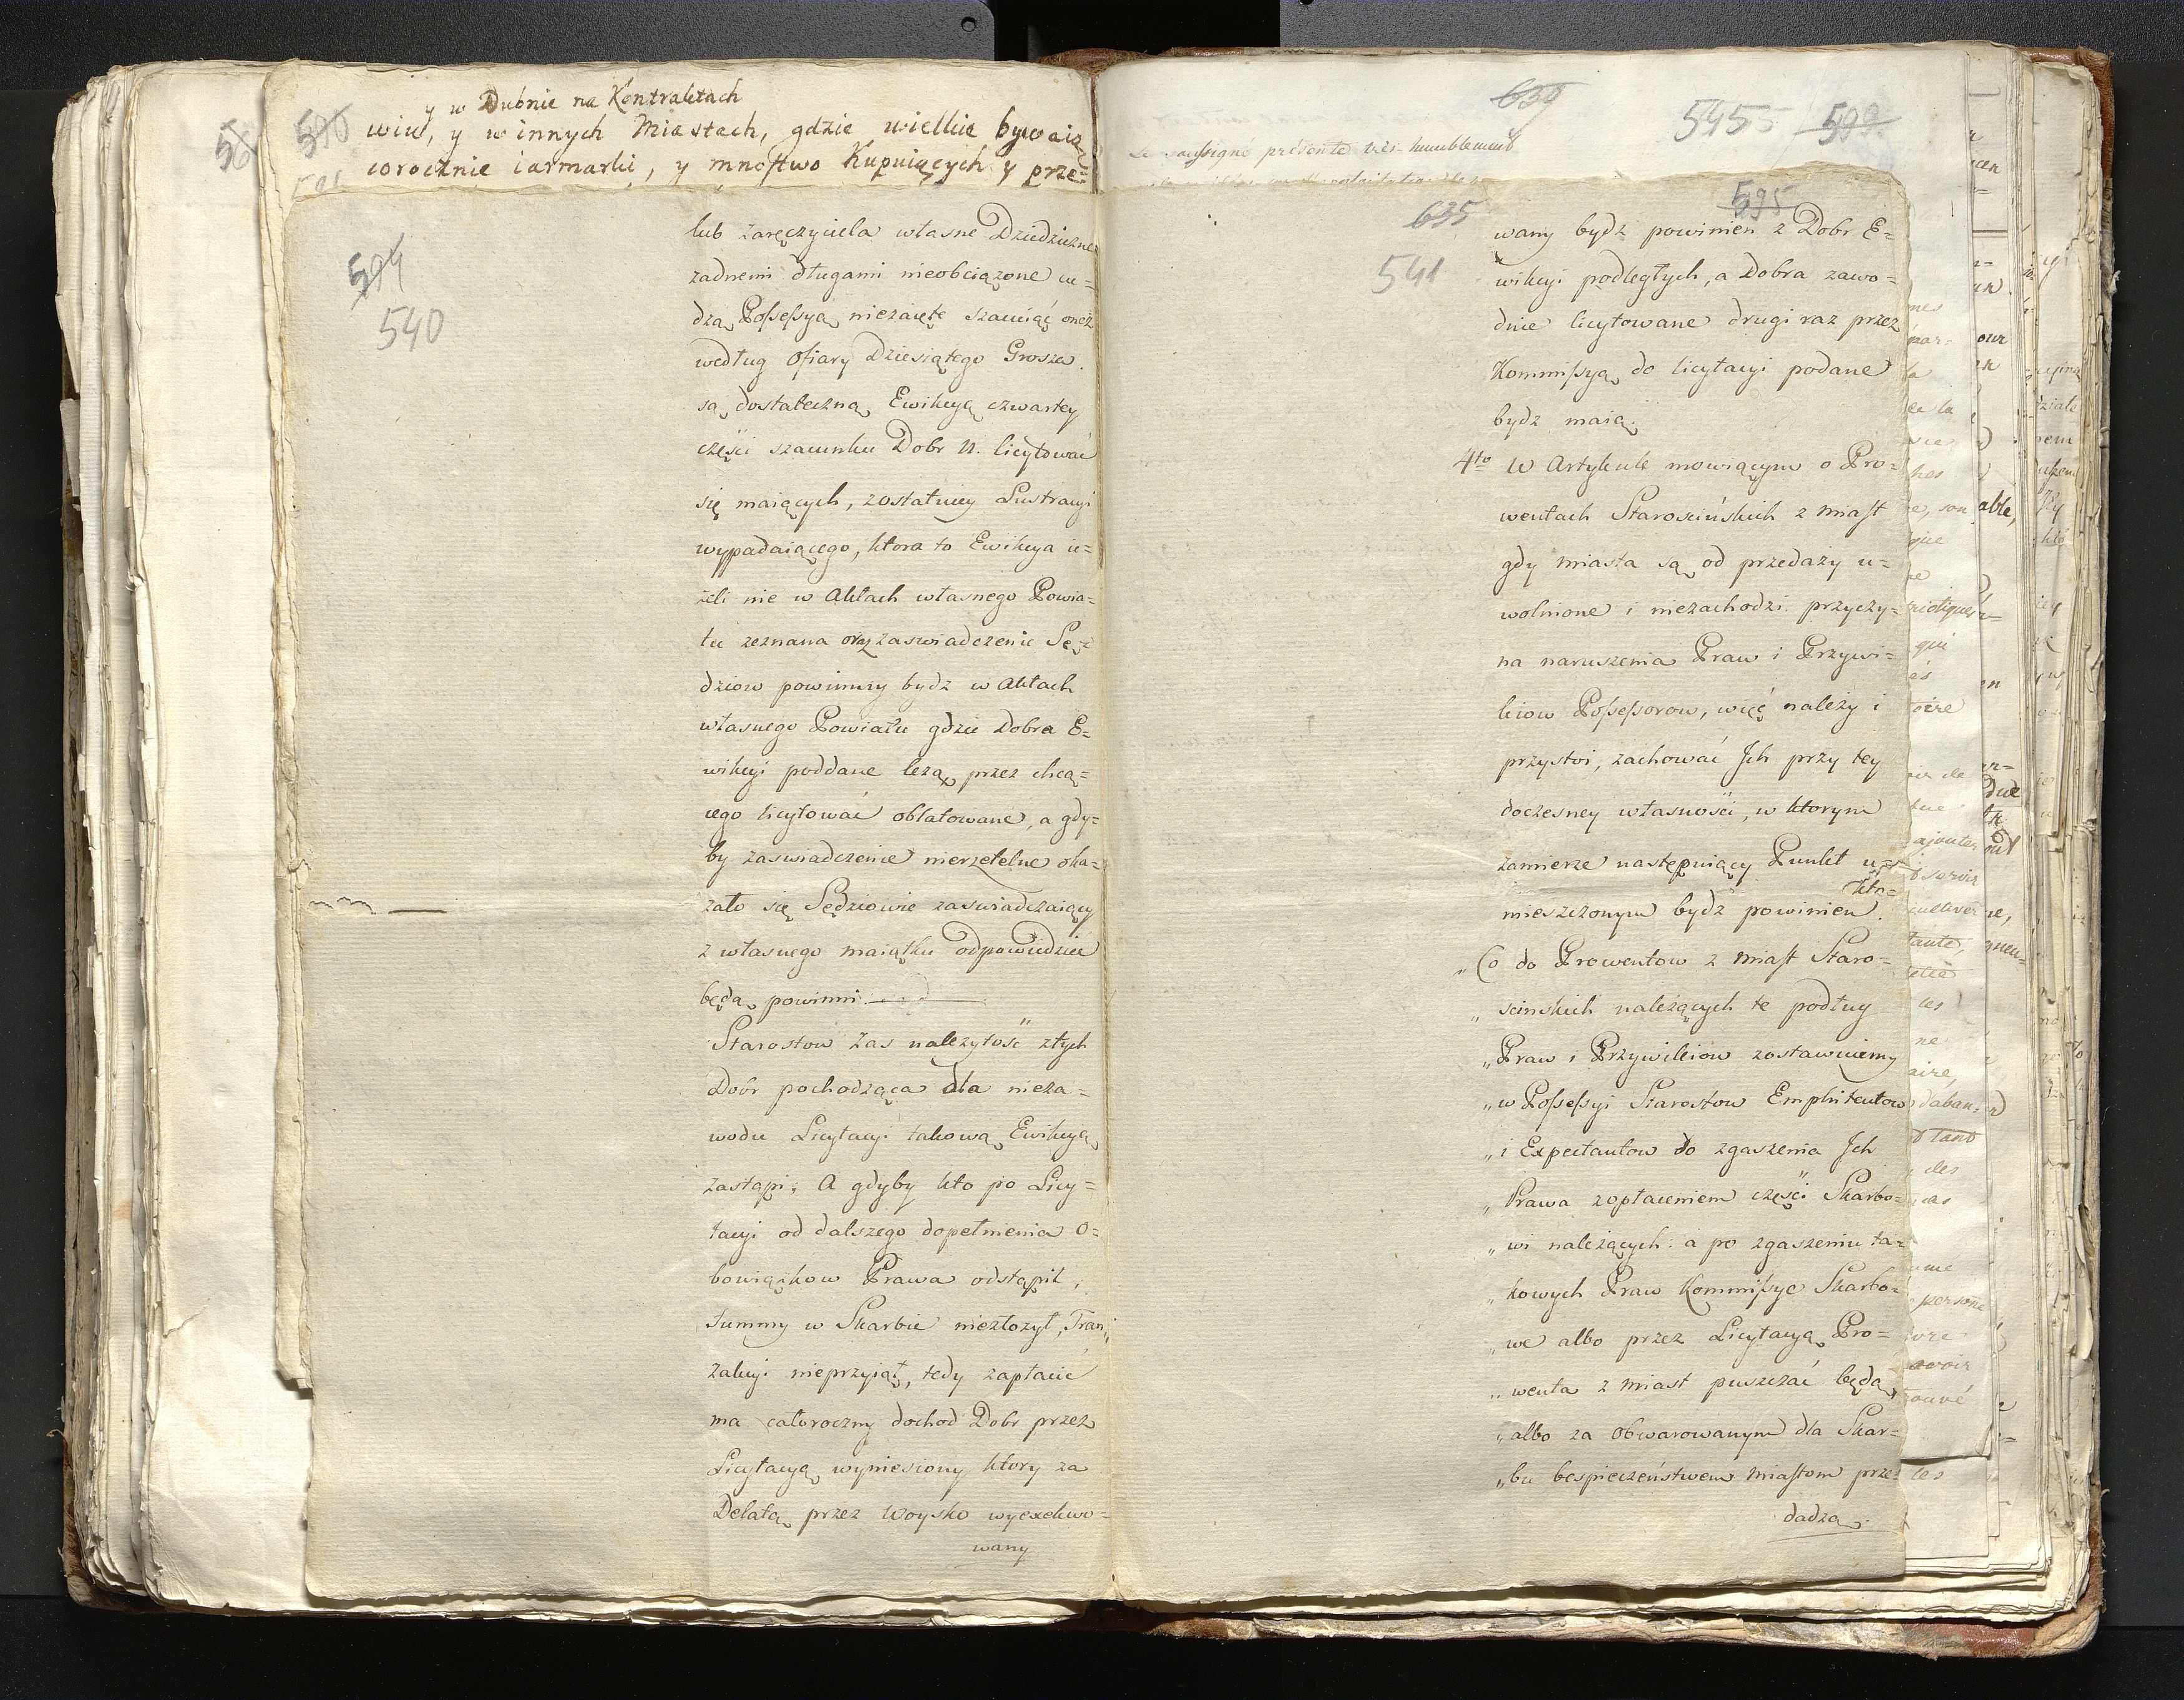 y w Dubnie na Kontraktach
wiu, y w innych Miastach, gdzie wielkie bywaią
corocznie iarmarki, y mnostwo Kupuiących y prze=
594
540
lub zaręczyciela własne Dziedziczne
żadnemi długami nieobciążone cu=
dzą Possessyą niezaięte szacuiąc oneż
według Ofiary Dziesiątego Grosza.
są dostateczną Ewikcyą czwartey
części szacunku Dobr N. licytować
się maiących, zostatniey Lustracyi
wypadaiącego, ktora to Ewikcya ie=
żeli nie w Aktach własnego Powia=
tu zeznana oraz zaswiadczenie Sę=
dziow powinny bydz w Aktach
własnego Powiatu gdzie Dobra E=
wikcyi poddane leżą przez chcą=
cego licytować oblatowane, a gdy=
by zaswiadczenie nierzetelne oka=
zało się Sędziowie zaswiadczaiący
z własnego maiątku odpowiedzieć
będą powinni.
Starostow zas należytość ztych
Dobr pochodząca dla nieza=
wodu Licytacyi takową Ewikcyą
zastąpi; A gdyby kto po Licy=
tacyi od dalszego dopełnienia O=
bowiązkow Prawa odstąpił,
Summy w Skarbie niezłożył, Tran=
zakcyi nieprzyiął, tedy zapłacić
ma całoroczny dochod Dobr przez
Licytacyą wyniesiony ktory za
Delatą przez Woysko wyexekwo=
wany
639
5455 599
Le soussigné présente très-humblement
595
635
541
wany bydź powinien z Dobr E=
wikcyi podległych, a Dobra zawo=
dnie licytowane drugi raz przez
Kommissyą do licytacyi podane
bydz maią.
4to W Artykule mowiącym o Pro=
wentach Starościńskich z miast
gdy miasta są od przedaży u=
wolnione i niezachodzi przyczy=
na naruszenia Praw i Przywi=
leiow Possessorow, więc należy i
przystoi, zachować Ich przy tey
doczesney własności, w ktorym
zamierze następuiący Punkt u=
mieszczonym bydź powinien.
„Co do Prowentow z miast Staro=
„scinskich należących te podług
„Praw i Przywileiow zostawuiemy
„w Possessyi Starostow Emphiteutow
„i Expectantow do zgaszenia Ich
„Prawa zopłaceniem części Skarbo=
„wi należących: a po zgaszeniu ta=
„kowych Praw Kommissye Skarbo=
„we albo przez Licytacyą Pro=
„wenta z miast puszczać będą
„albo za obwarowanym dla Skar=
„bu bespieczeństwem miastom prze=
dadzą.